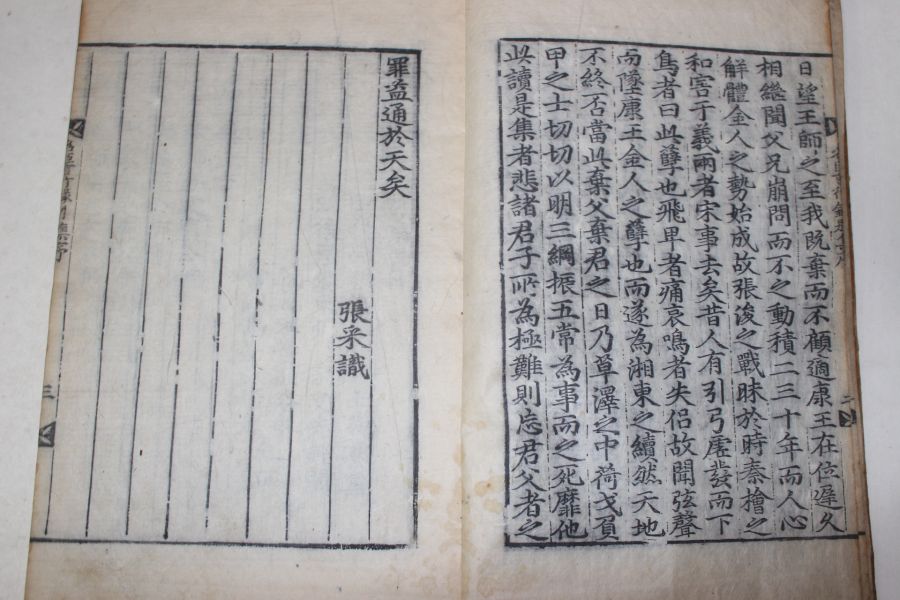 日望王師之至我旣棄而不顧適康王在位遲久
相繼聞父兄崩問而不之動積二三十年而人心
解體金人之勢始成故張浚之戰昧於時秦檜之
和害于義兩者宋事去矣昔人有引弓虛發而下
鳥者曰此孽也飛卑者痛哀鳴者失侶故聞弦聲
而墜康王金人之孽也而遂為湘東之續然天地
不終否當此棄父棄君之日乃草澤之中荷戈負
甲之士切切以明三綱振五常為事而之死靡他
此讀是集者悲諸君子所為極難則忘君父者之
二
罪益通於天矣
張采識
三